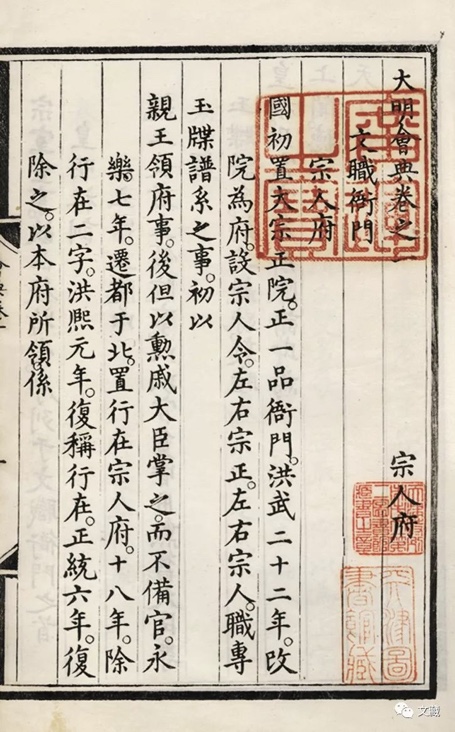 大明會典卷之一
文職衙門　宗人府
宗人府
國初置大宗正院。正一品衙門。洪武二十二年。改
院為府。設宗人令。左右宗正。左右宗人。職專
玉牒譜系之事。初以
親王領府事。後但以勳戚大臣掌之。而不備官。永
樂七年。遷都于北。置行在宗人府。十八年。除
行在二字。洪熙元年。復稱行在。正統六年。復
除之。以本府所領係
天津圖書館藏
文藏